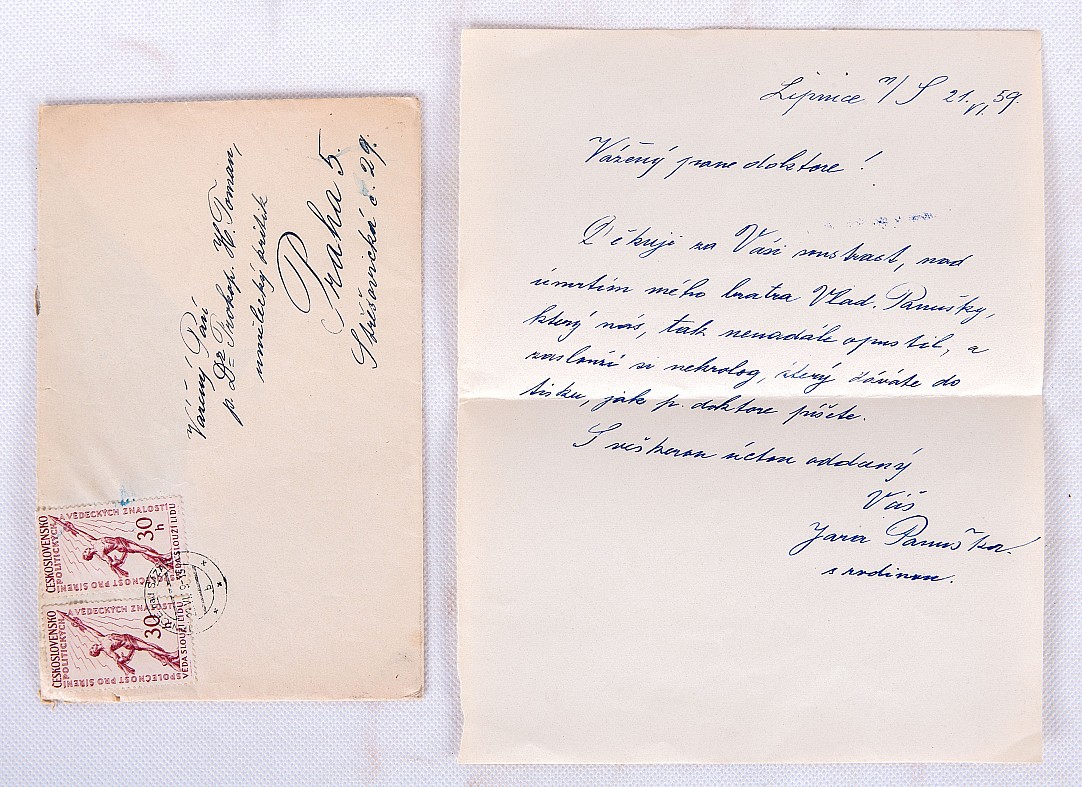 Vážený Pán
p. Dr Prokop. H. Toman,
umělecký kritik
Praha 5
Střešovická č. 29.
ČESKOSLOVENSKO
SPOLEČNOST PRO ŠÍŘENÍ
POLITICKÝCH
A VĚDECKÝCH ZNALOSTÍ
30 h
VĚDA SLOUŽÍ LIDU
ČESKOSLOVENSKO
SPOLEČNOST PRO ŠÍŘENÍ
POLITICKÝCH
A VĚDECKÝCH ZNALOSTÍ
30 h
VĚDA SLOUŽÍ LIDU
Lipnice n/S 21. VI. 59.
Vážený pane doktore!
Děkuji za Vaši soustrast, nad
úmrtím mého bratra Vlad. Panušky,
který nás, tak nenadále opustil, a
zaslouží si nekrolog, který dáváte do
tisku, jak p. doktore píšete.
S veškerou úctou oddaný
Váš
Jara Panuška
s rodinou.